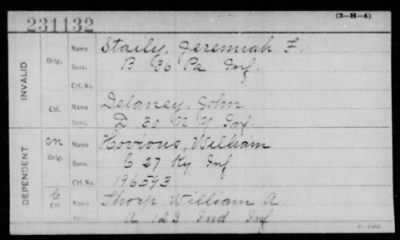 231132
(3-H-4)
INVALID
Orig. Name Staily, Jeremiah F.
Serv. B 86 Pa Inf.
Ctf. No.
Ctf. Name Delaney, John
Serv. D 30 N Y Inf.
DEPENDENT
on Orig. Name Hovious, William
Serv. C 27 Ky Inf
Ctf. No. 196593
C Ctf. Name Thorp William A
A 123 Ind Inf